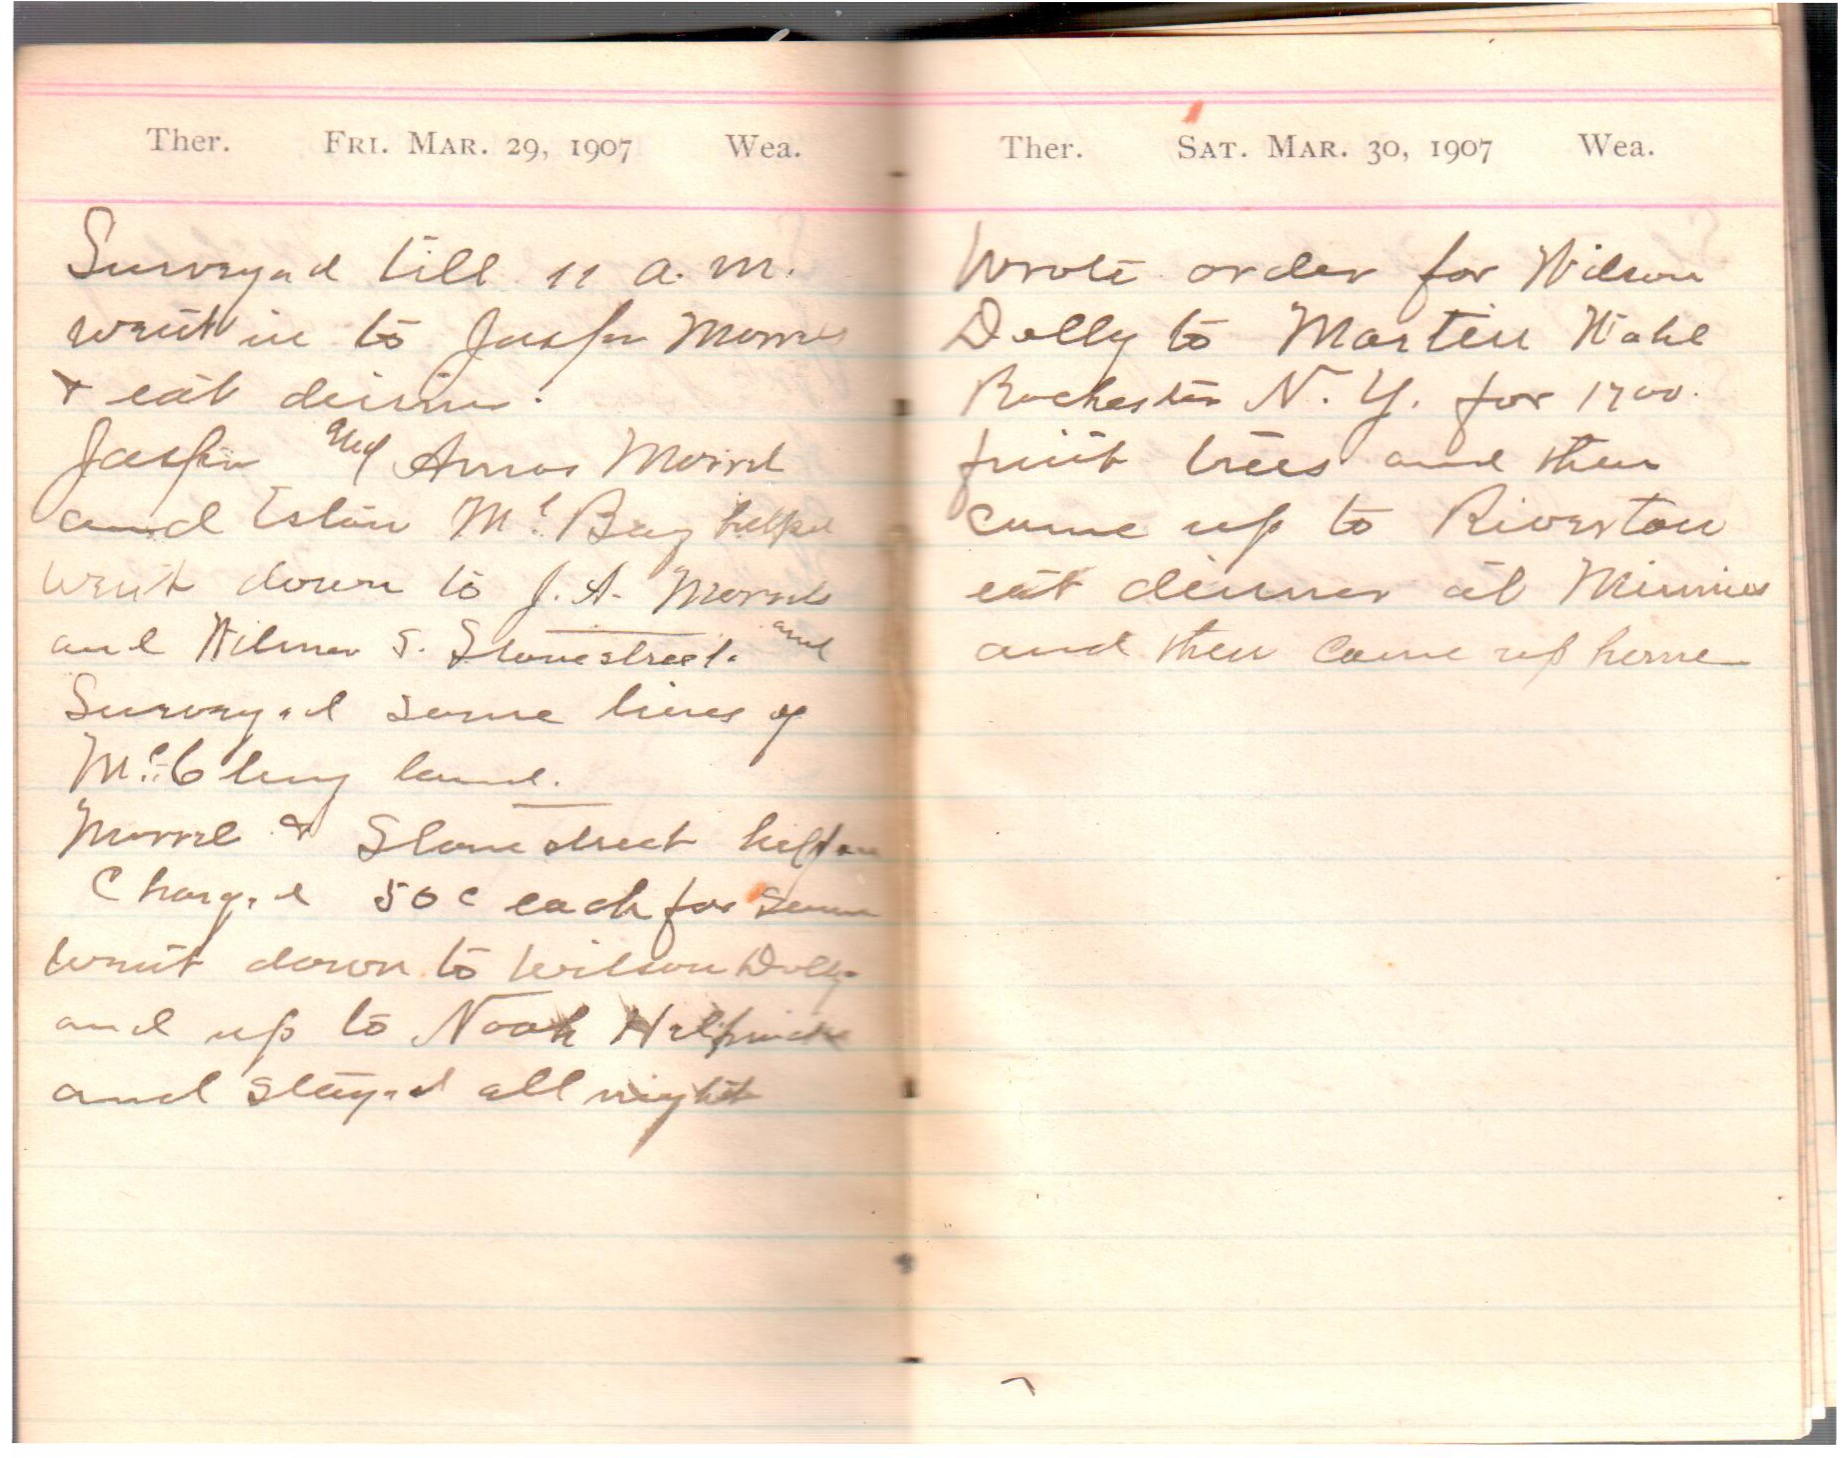 Ther. Fri. Mar. 29, 1907 Wea.
Surveyed till 11 a.m.
went in to Jasper Morris
& eat dinner.
Jasper and Amos Morris
and Eston Mc Bay helped
went down to J. A. Morris
and Wilmer S. Stonestreet. and
Surveyed some lines of
McClung land.
Morris & Stonestreet
Charged 50c each for same
went down to Wilson Dolly
and up to Noah
and stayed all night
Ther. Sat. Mar. 30, 1907 Wea.
Wrote order for Wilson
Dolly to Martin Wahl
Rochester N. Y. for 1700
fruit trees and then
came up to Riverton
eat dinner at Minnies
and then came up home